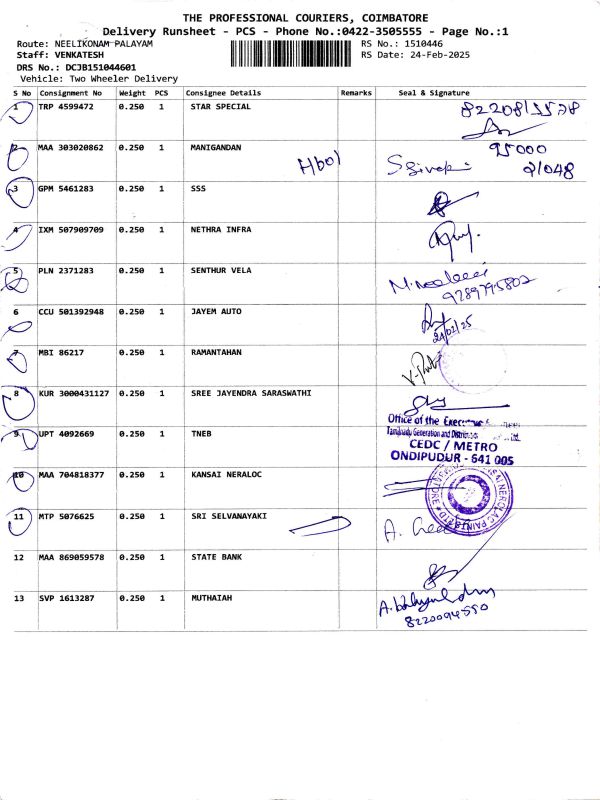 THE PROFESSIONAL COURIERS, COIMBATORE
Delivery Runsheet - PCS - Phone No.:0422-3505555 - Page No.:1
Route: NEELIKONAM PALAYAM RS No.: 1510446
Staff: VENKATESH RS Date: 24-Feb-2025
DRS No.: DCJB151044601
Vehicle: Two Wheeler Delivery
S No Consignment No Weight PCS Consignee Details Remarks Seal & Signature
1 TRP 4599472 0.250 1 STAR SPECIAL
2 MAA 303020862 0.250 1 MANIGANDAN 95000
21048
3 GPM 5461283 0.250 1 SSS
4 IXM 507909709 0.250 1 NETHRA INFRA
5 PLN 2371283 0.250 1 SENTHUR VELA
9789795802
6 CCU 501392948 0.250 1 JAYEM AUTO
7 MBI 86217 0.250 1 RAMANTAHAN
8 KUR 3000431127 0.250 1 SREE JAYENDRA SARASWATHI
Office of the
9 UPT 4092669 0.250 1 TNEB
Tamilnadu Generation and Ltd.
CEDC / METRO
ONDIPUDUR - 641 005
10 MAA 704818377 0.250 1 KANSAI NERALOC
11 MTP 5076625 0.250 1 SRI SELVANAYAKI
12 MAA 869059578 0.250 1 STATE BANK
13 SVP 1613287 0.250 1 MUTHAIAH
8220094550